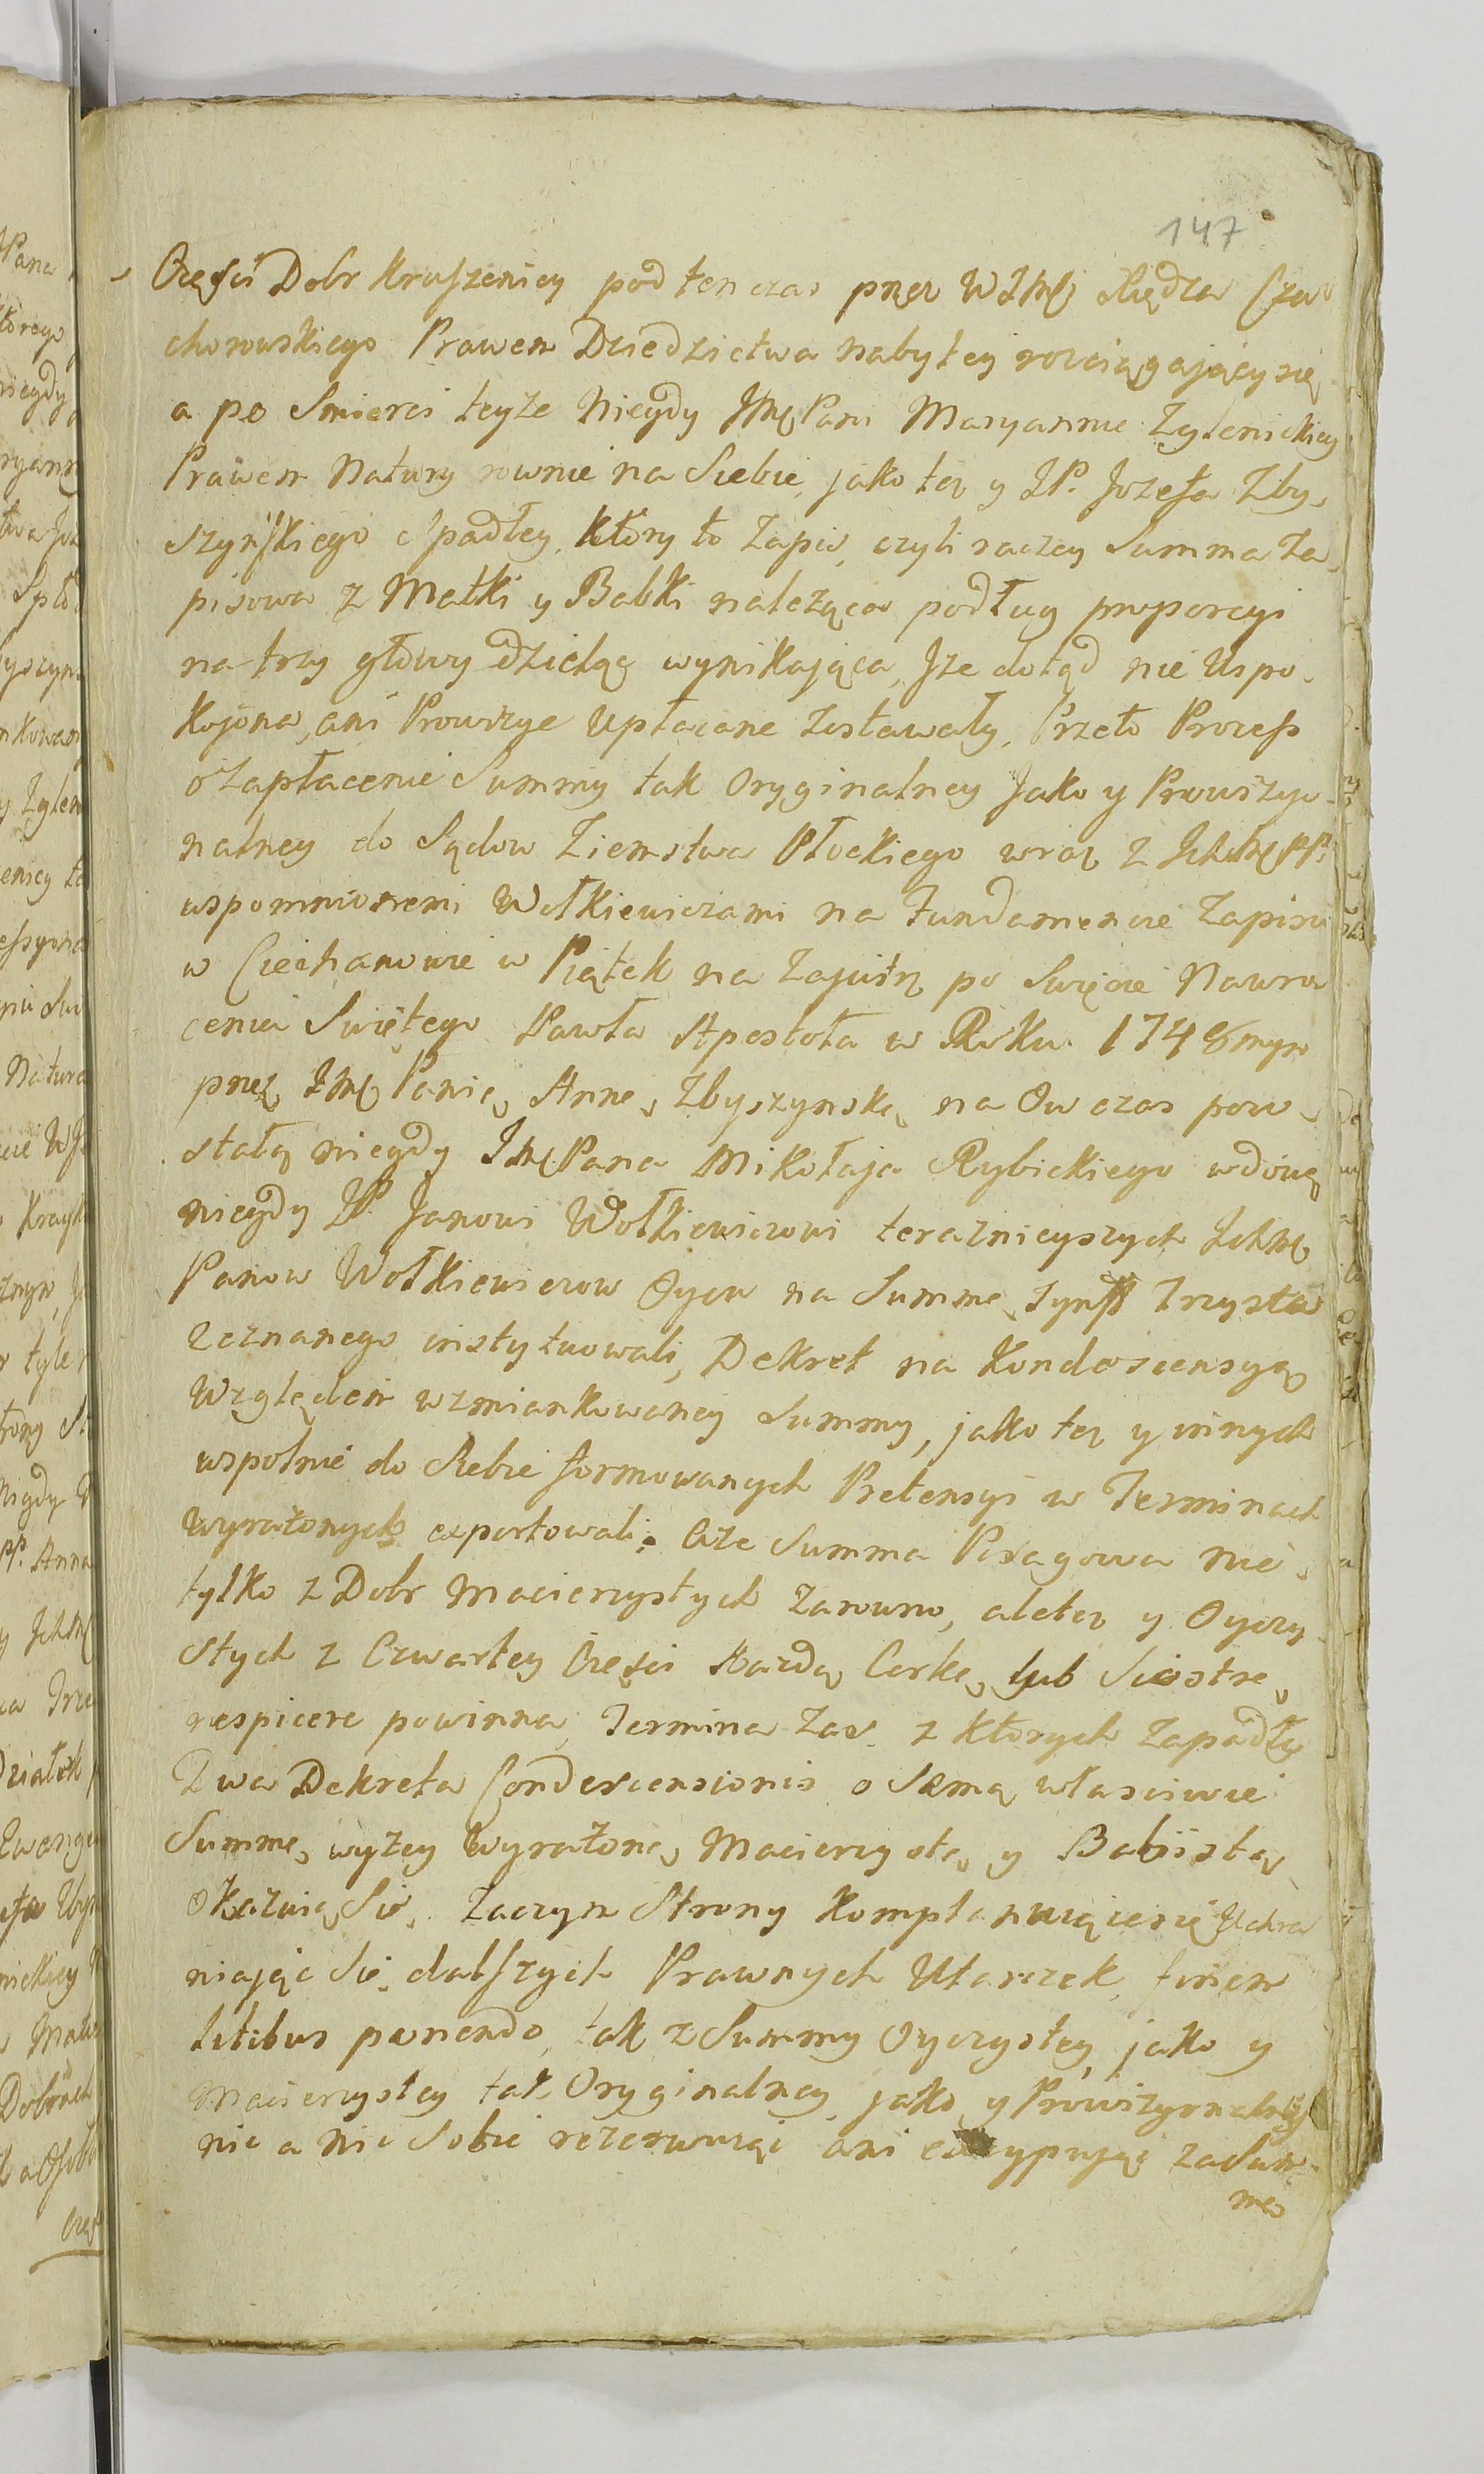 147
Części Dobr Kruszenicy pod ten czas przez WJMć Xiędza Cza
chorowskiego Prawem Dziedzictwa nabytey rozciągaiący się
a po Smierci teyże Niegdy JMć Pani Maryannie Zglenickiey
Prawem Natury rownie na Siebie, jako też y JP. Jozefa Zby,
szyńskiego spadłey, który to Zapis, czyli raczey Summa Za,
pisowa z Matki y Babki należąca podług proporcyi
na trzy głowy dzieląc wynikająca, Jże dotąd nie Uspo,
kojona, ani Prowizye Upłacane Zostawały, Przeto Process
o Zapłacenie Summy tak Oryginalney Jako y Prowizyo,
nalney do Sądow Ziemstwa Płockiego wraz z JchMć PP.
wspomnionemi Wołkiewiczami na Fundamencie Zapisu
w Ciechanowie w Piątek na Zajutrz po Swięcie Nawro
cenia Swiętego Pawła Apostoła w Roku 1748mym
przez JMć Panią Annę Zbyszynską na Ow czas pow,
stałą niegdy JMć Pana Mikołaja Rybickiego wdowę
niegdy JP. Janowi Wołkiewiczowi teraznieyszych JchMć
Panow Wołkiewiczow Oycu na Summę Tynff Trzysta
Zeznanego instytuowali, Dekret na Kondescensyą
Względem wzmiankowaney Summy, jako też y innych
wspolnie do Siebie formowanych Pretensyi w Terminach
wyrażonych exportowali; Oże Summa Posagowa nie,
tylko z Dobr Macierzystych Zarowno, aleteż y Oyczy
stych z Czwartey Części każdą Corkę, lub Siostrę,
respicere powinna, Termina Zas z których Zapadły
Dwa Dekreta Condescensionis o Samą właściwie
Summę, wyżey Wyrażonę, Macierzystą y Babiistą
okazuią Się, Zaczym Strony Komplanuiące się Uchra
niając Się dalszych Prawnych Utarczek, finem
litibus ponendo, tak z Summy Oyczystey, jako y
Macierzystey tak Oryginalney, jako y Prowizyonalney
nic a nic Sobie rezerwuiąc ani excypując za Sum,
mę